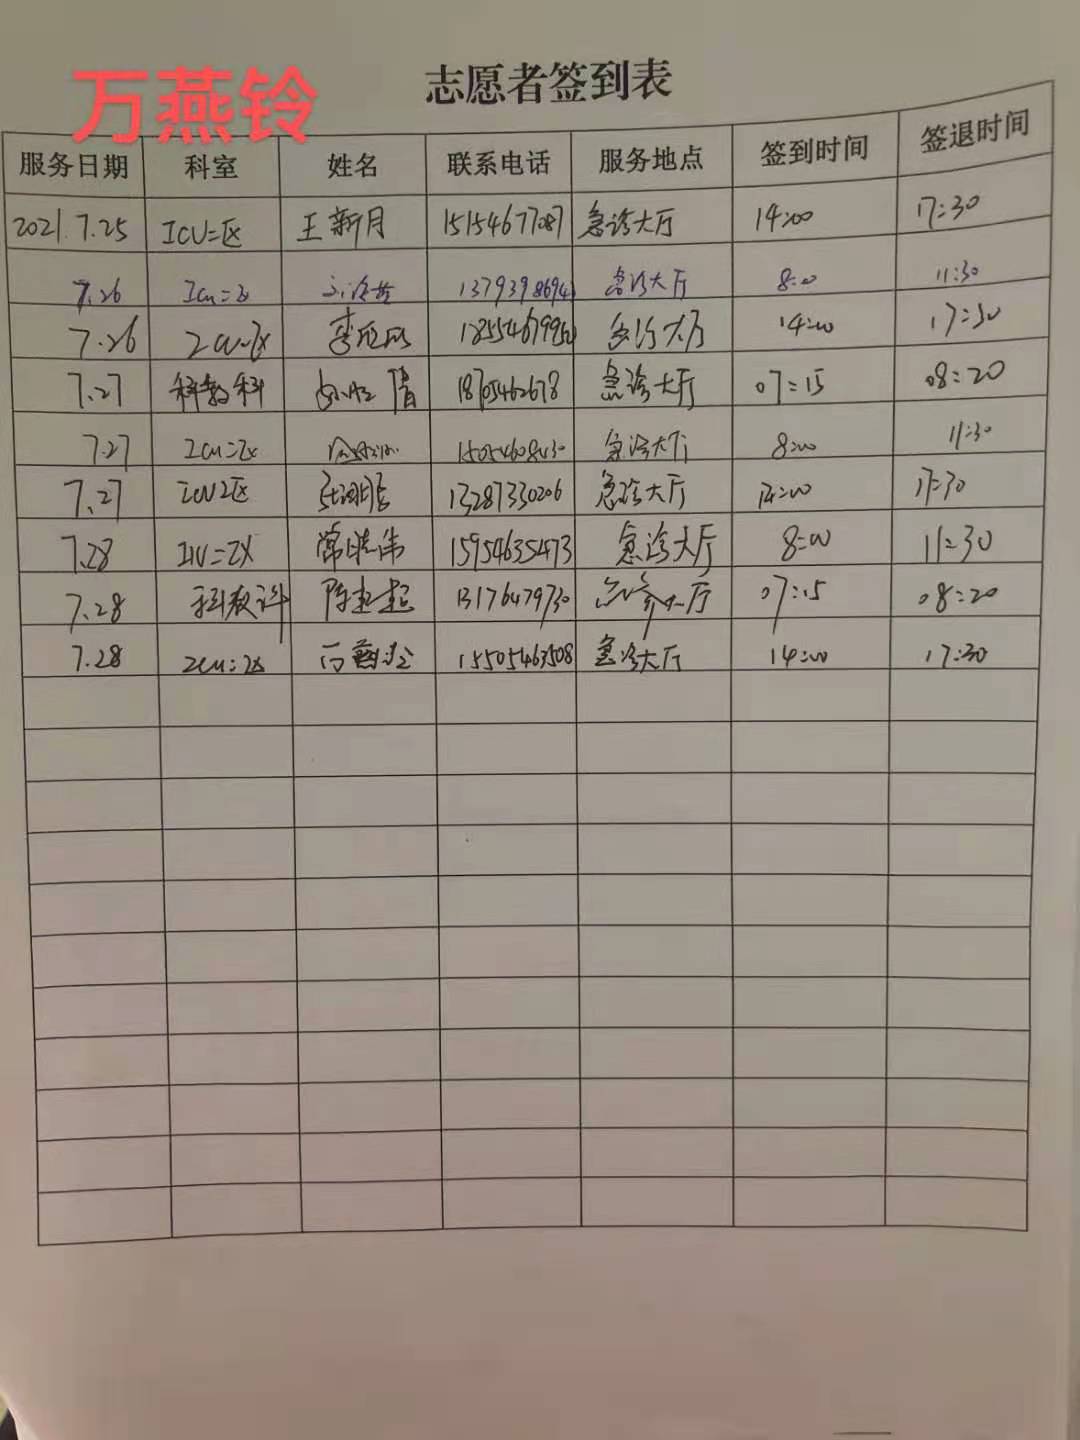 万燕铃
志愿者签到表
服务日期 科室 姓名 联系电话 服务地点 签到时间 签退时间
2021.7.25 ICU二区 王新月 15154677087 急诊大厅 14:00 17:30
7.26 ICU二区 1379398694 急诊大厅 8:00 11:30
7.26 急诊大厅 14:00 17:30
7.27 科教科 18705462678 急诊大厅 07:15 08:20
7.27 ICU二区 急诊大厅 8:00 11:30
7.27 ICU2区 13287330206 急诊大厅 17:30
7.28 常晓伟 15954635473 急诊大厅 8:00 11:30
7.28 科教科 陈赵起 13176479730 07:15 08:20
7.28 ICU二区 15505463508 急诊大厅 14:00 17:30